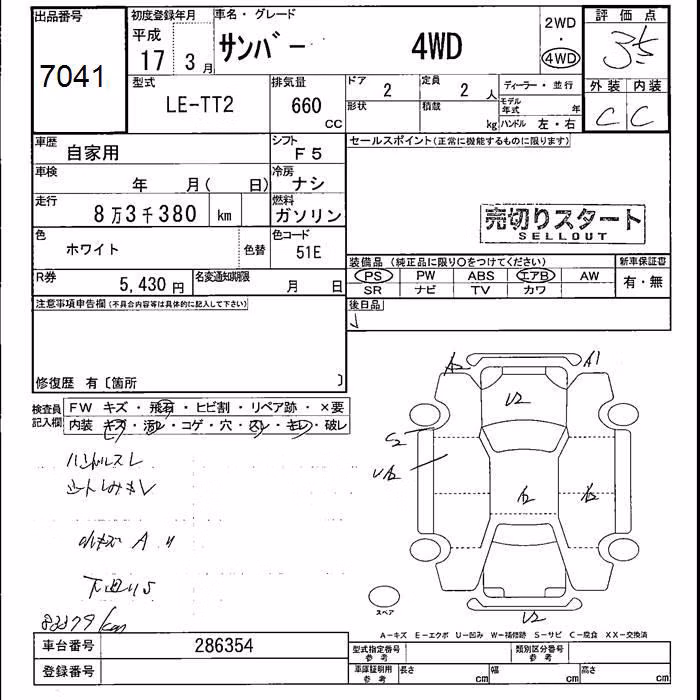 出品番号 初度登録年月 車名・グレード 評価点
7041 平成 17年 3月 サンバー 4WD 2WD・4WD 3.5
型式 LE-TT2 排気量 660 CC ドア 2 定員 2人 ディーラー・並行 外装 内装
形状 積載 kg モデル年式 年 ハンドル 左・右 C C
車歴 自家用 シフト F5 セールスポイント(正常に機能するものに限ります)
車検 年 月( 日) 冷房 ナシ
走行 8万3千380 km 燃料 ガソリン
売切りスタート
SELLOUT
色 ホワイト 色替 色コード 51E
装備品(純正品に限り○をつけてください) 新車保証書
PS PW ABS エアB AW 有・無
SR ナビ TV カワ
R券 5,430円 名変通知期限 月 日
注意事項申告欄(不具合内容等は具体的に記入して下さい) 後日品
修復歴 有〔箇所 〕
検査員記入欄 FW キズ・飛石・ヒビ割・リペア跡・×要
内装 キズ・汚レ・コゲ・穴・スレ・キレ・破レ
A2 A1
U2
C2
UA2
A2 A2
ハンドルスレ
シートしみキレ
小キズ A U
下廻りS
83379km
スペア
U2
A-キズ E-エクボ U-凹み W-補修跡 S-サビ C-腐食 XX-交換済
車台番号 286354 型式指定番号 参考 類別区分番号 参考
登録番号 車庫証明用 参考 長さ cm 幅 cm 高さ cm